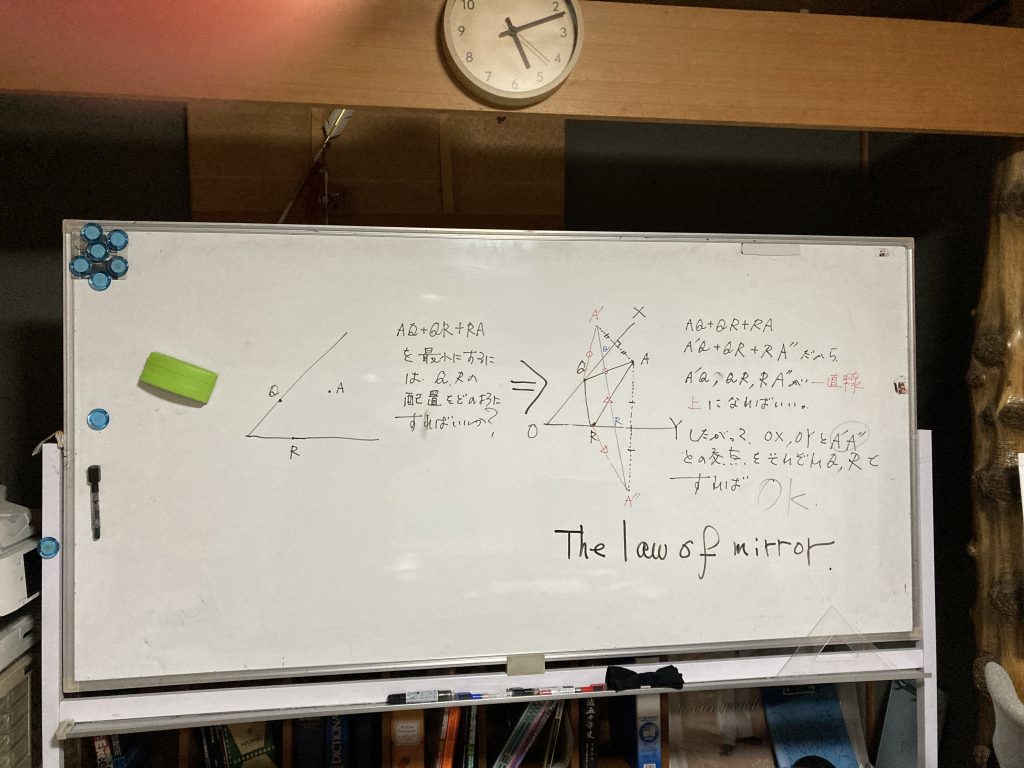 10
2
3
4
5
6
7
8
9
Q
A
R
AQ+QR+RA
を最小にするに
は、Q、Rの
配置をどのように
すればいいか?
⇒
A'
X
Q
A
O
R
R
Y
A"
AQ+QR+RA
A'Q+QR+RA"だから
A'Q, QR, RA"が一直線
上になればいい。
したがって、OX, OYとA'A"
との交点をそれぞれQ, Rと
すれば OK.
The law of mirror.